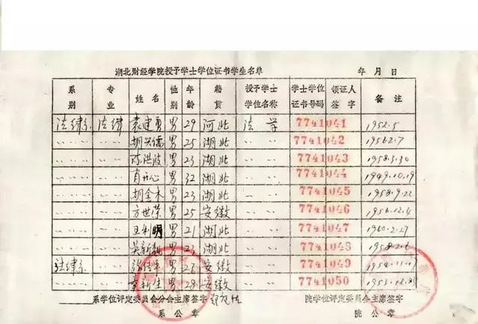 湖北财经学院授予学士学位证书学生名单
年 月 日
系别 专业 姓名 性别 年龄 籍贯 授予学士学位名称 学士学位证书号码 领证人签字 备注
法律系 法律 袁建勇 男 29 河北 法学 7741041 1952.5
胡兴儒 男 25 湖北 7741042 1956.2.7
陈洪波 男 23 湖北 7741043 1958.5.30
肖 男 32 湖北 7741044 1949.10.19
胡金木 男 23 湖北 7741045 1958.9.22
方世荣 男 25 安徽 7741046 1956.12.4
王利明 男 21 湖北 7741047 1960.2.27
吴新 男 23 湖北 7741048 1958.2.6
法律系 男 安徽 7741049
新生 男 安徽 7741050
系学位评定委员会分会主席签字
院学位评定委员会主席签字
系公章
院公章